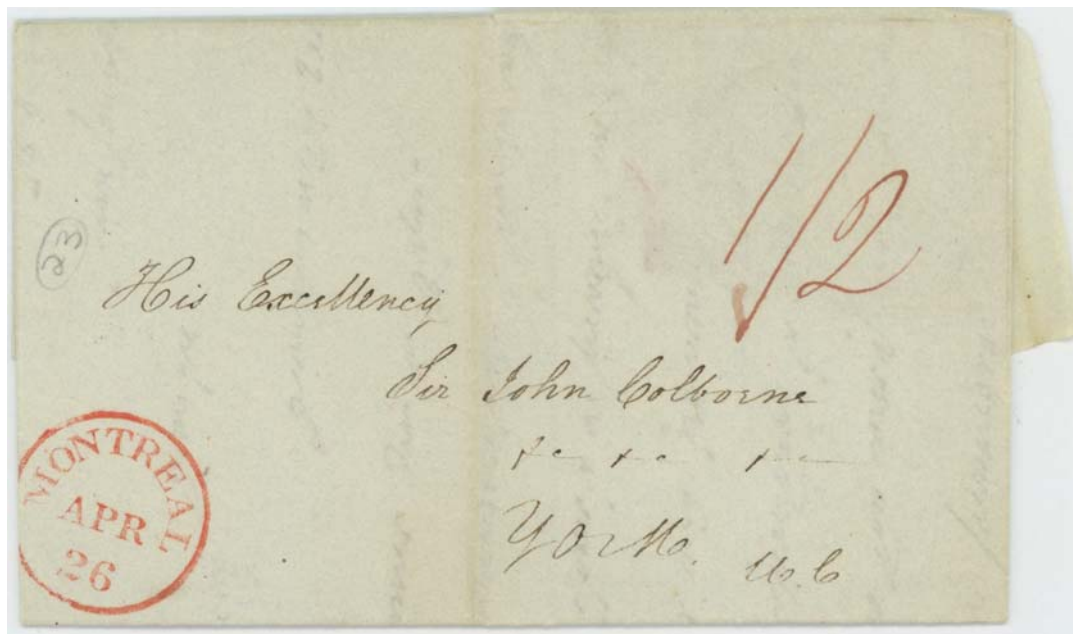 1/2
23
His Excellency
Sir John Colborne
&c &c &c
York. U.C
MONTREAL
APR
26